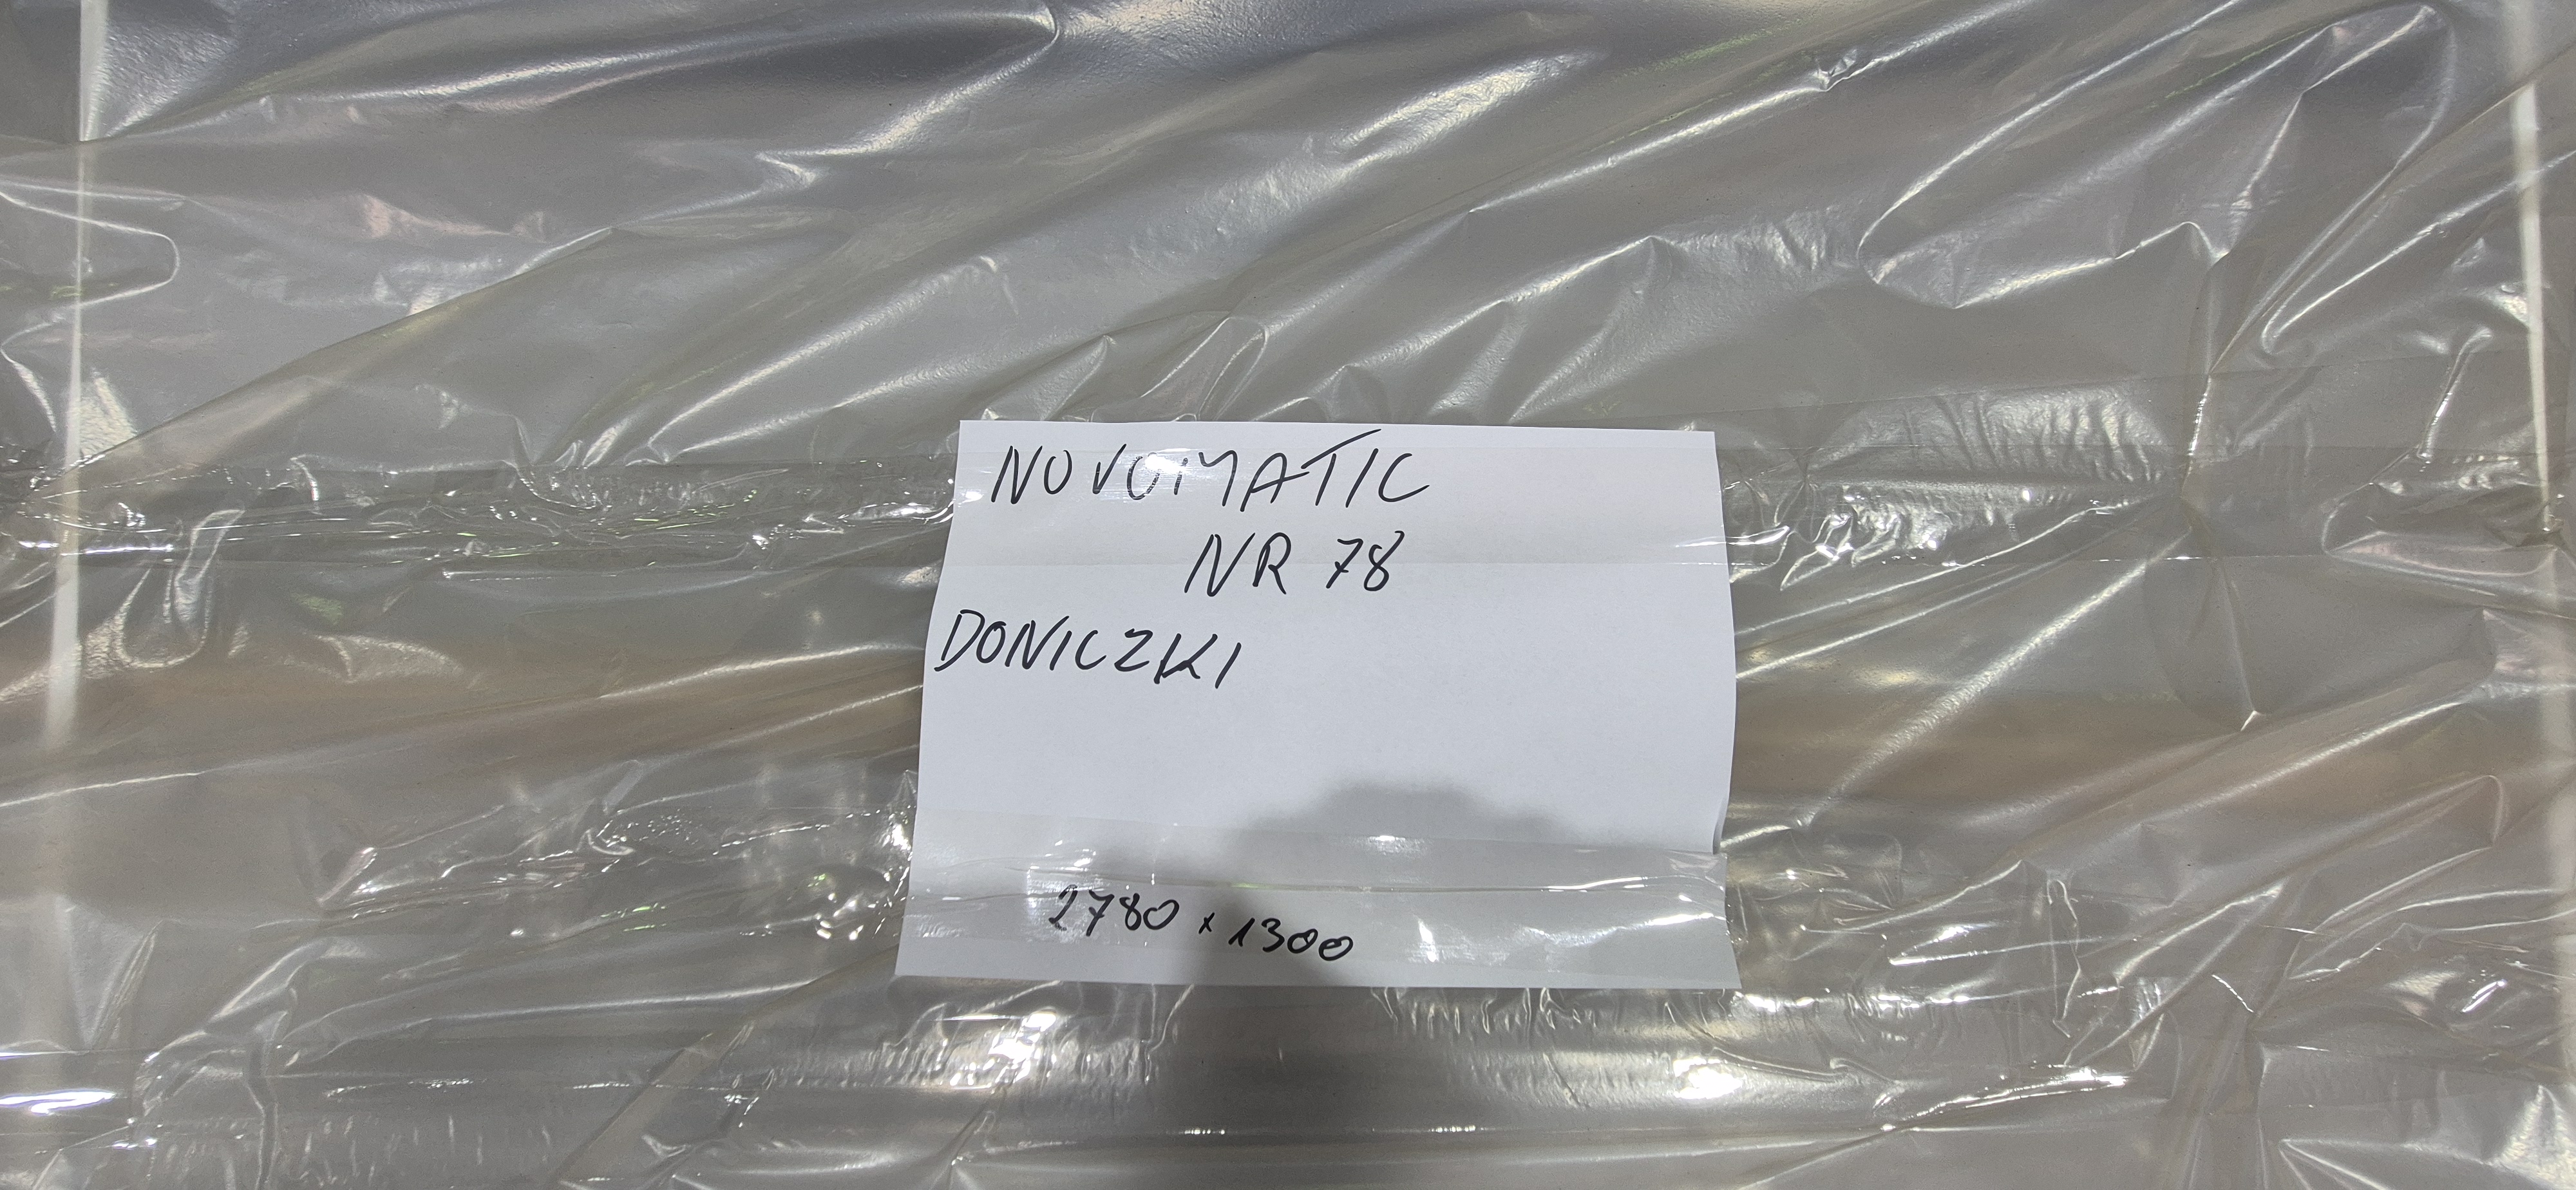 NOVOMATIC
NR 78
DONICZKI
2780 x 1300